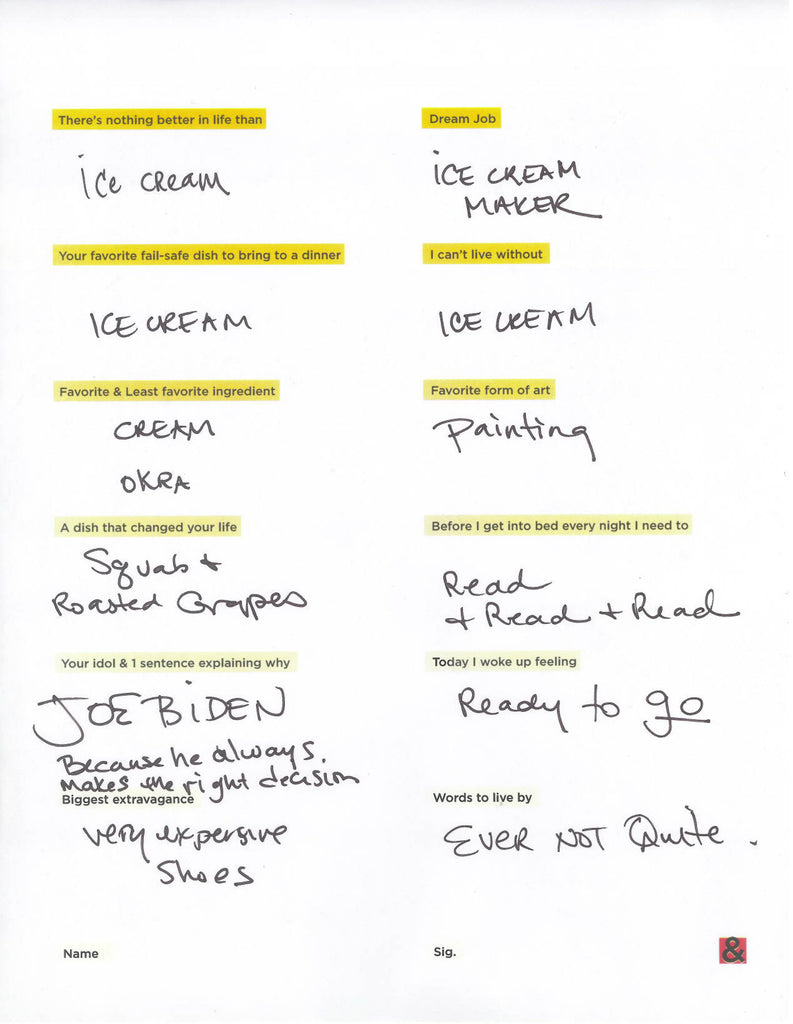 There's nothing better in life than
ice cream
Dream Job
ICE CREAM
MAKER
Your favorite fail-safe dish to bring to a dinner
ICE CREAM
I can't live without
ICE CREAM
Favorite & Least favorite ingredient
CREAM
OKRA
Favorite form of art
Painting
A dish that changed your life
Squab +
Roasted Grapes
Before I get into bed every night I need to
Read
+ Read + Read
Your idol & 1 sentence explaining why
JOE BIDEN
Because he always
makes the right decision
Today I woke up feeling
Ready to go
Biggest extravagance
very expensive
shoes
Words to live by
EVER NOT Quite.
Name
Sig.
&